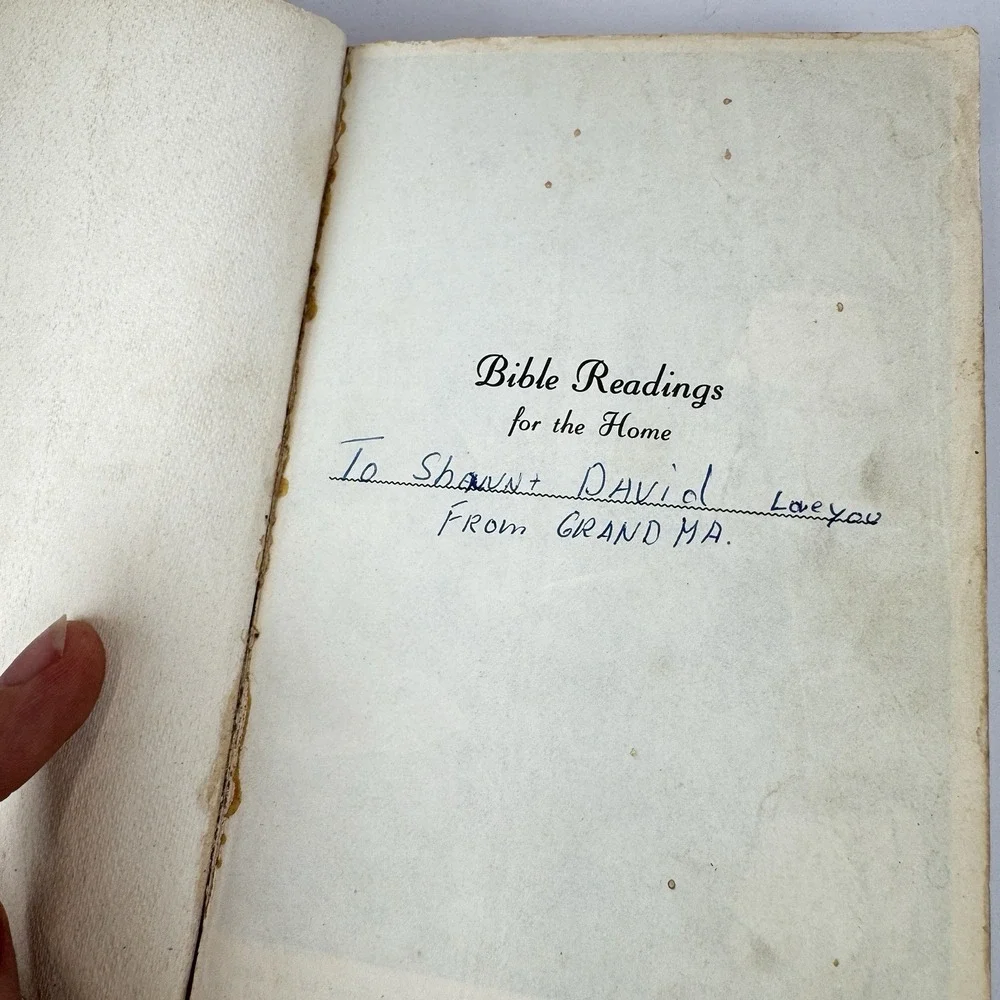 Bible Readings
for the Home
To Shawn + David Love you
FROM GRANDMA.